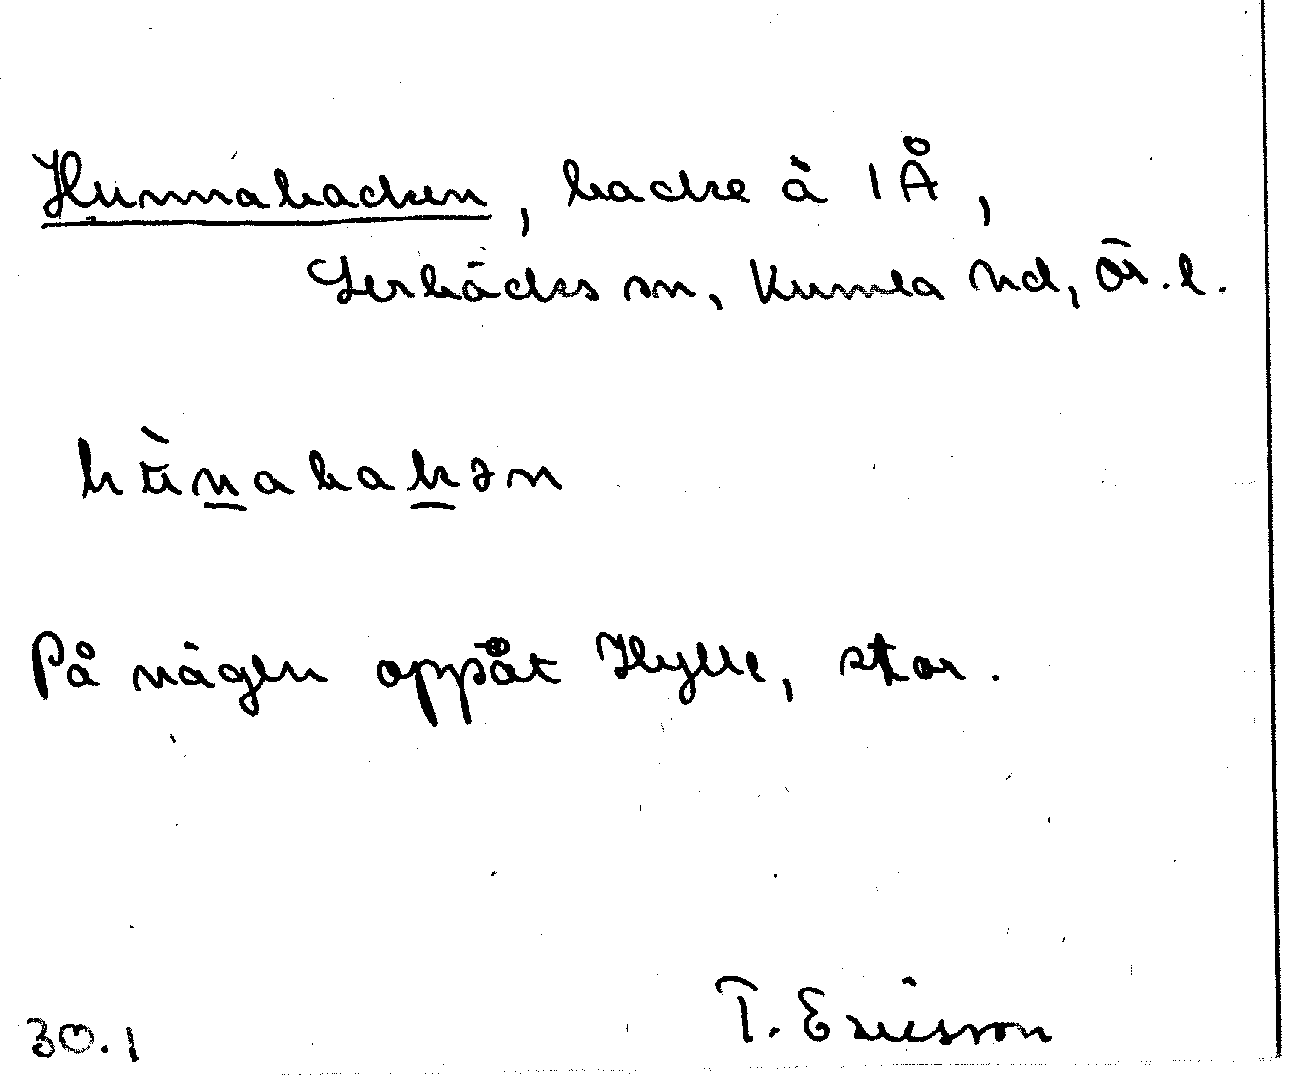 Hunnabacken, backe å 1Å,
Lerbäcks sn, Kumla hd, Ör. l.
hu̇̀nabakən
På vägen oppåt Hylle, stor.
T. Ericsson
30.1